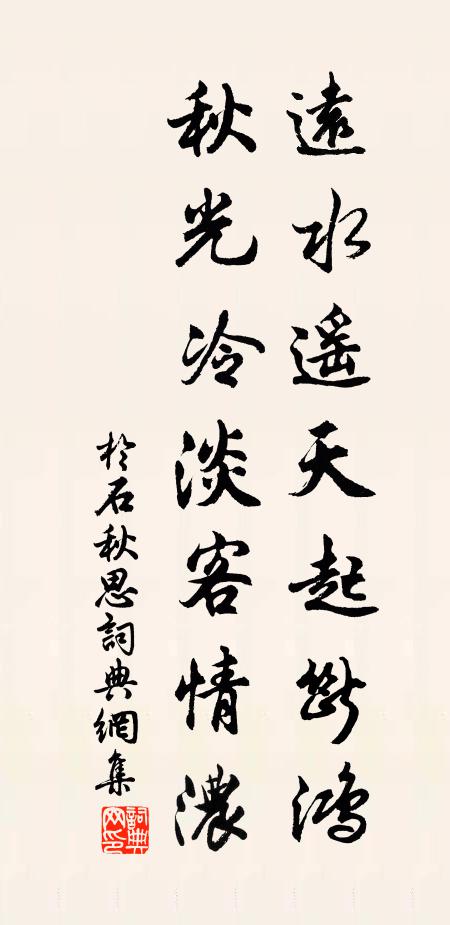 遠水遥天起断鴻
秋光冷淡客情濃
於石秋思詞典網集
詞典網印